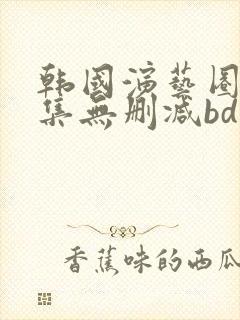 韩國演藝圈
集無删减bd
香蕉味的西瓜